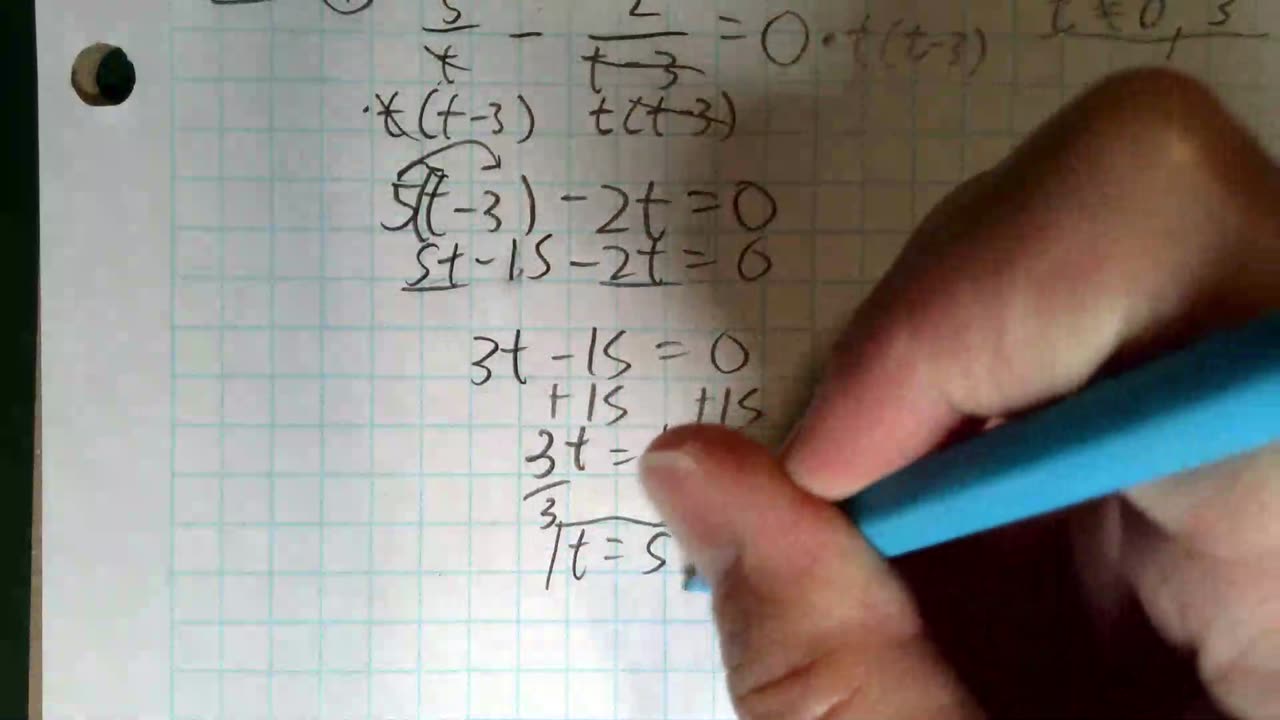 5/t - 2/t-3 = 0 · t(t-3) t ≠ 0, 3
· t(t-3) t(t-3)
5(t-3) - 2t = 0
5t - 15 - 2t = 0
3t - 15 = 0
+15 +15
3t =
3
t = 5